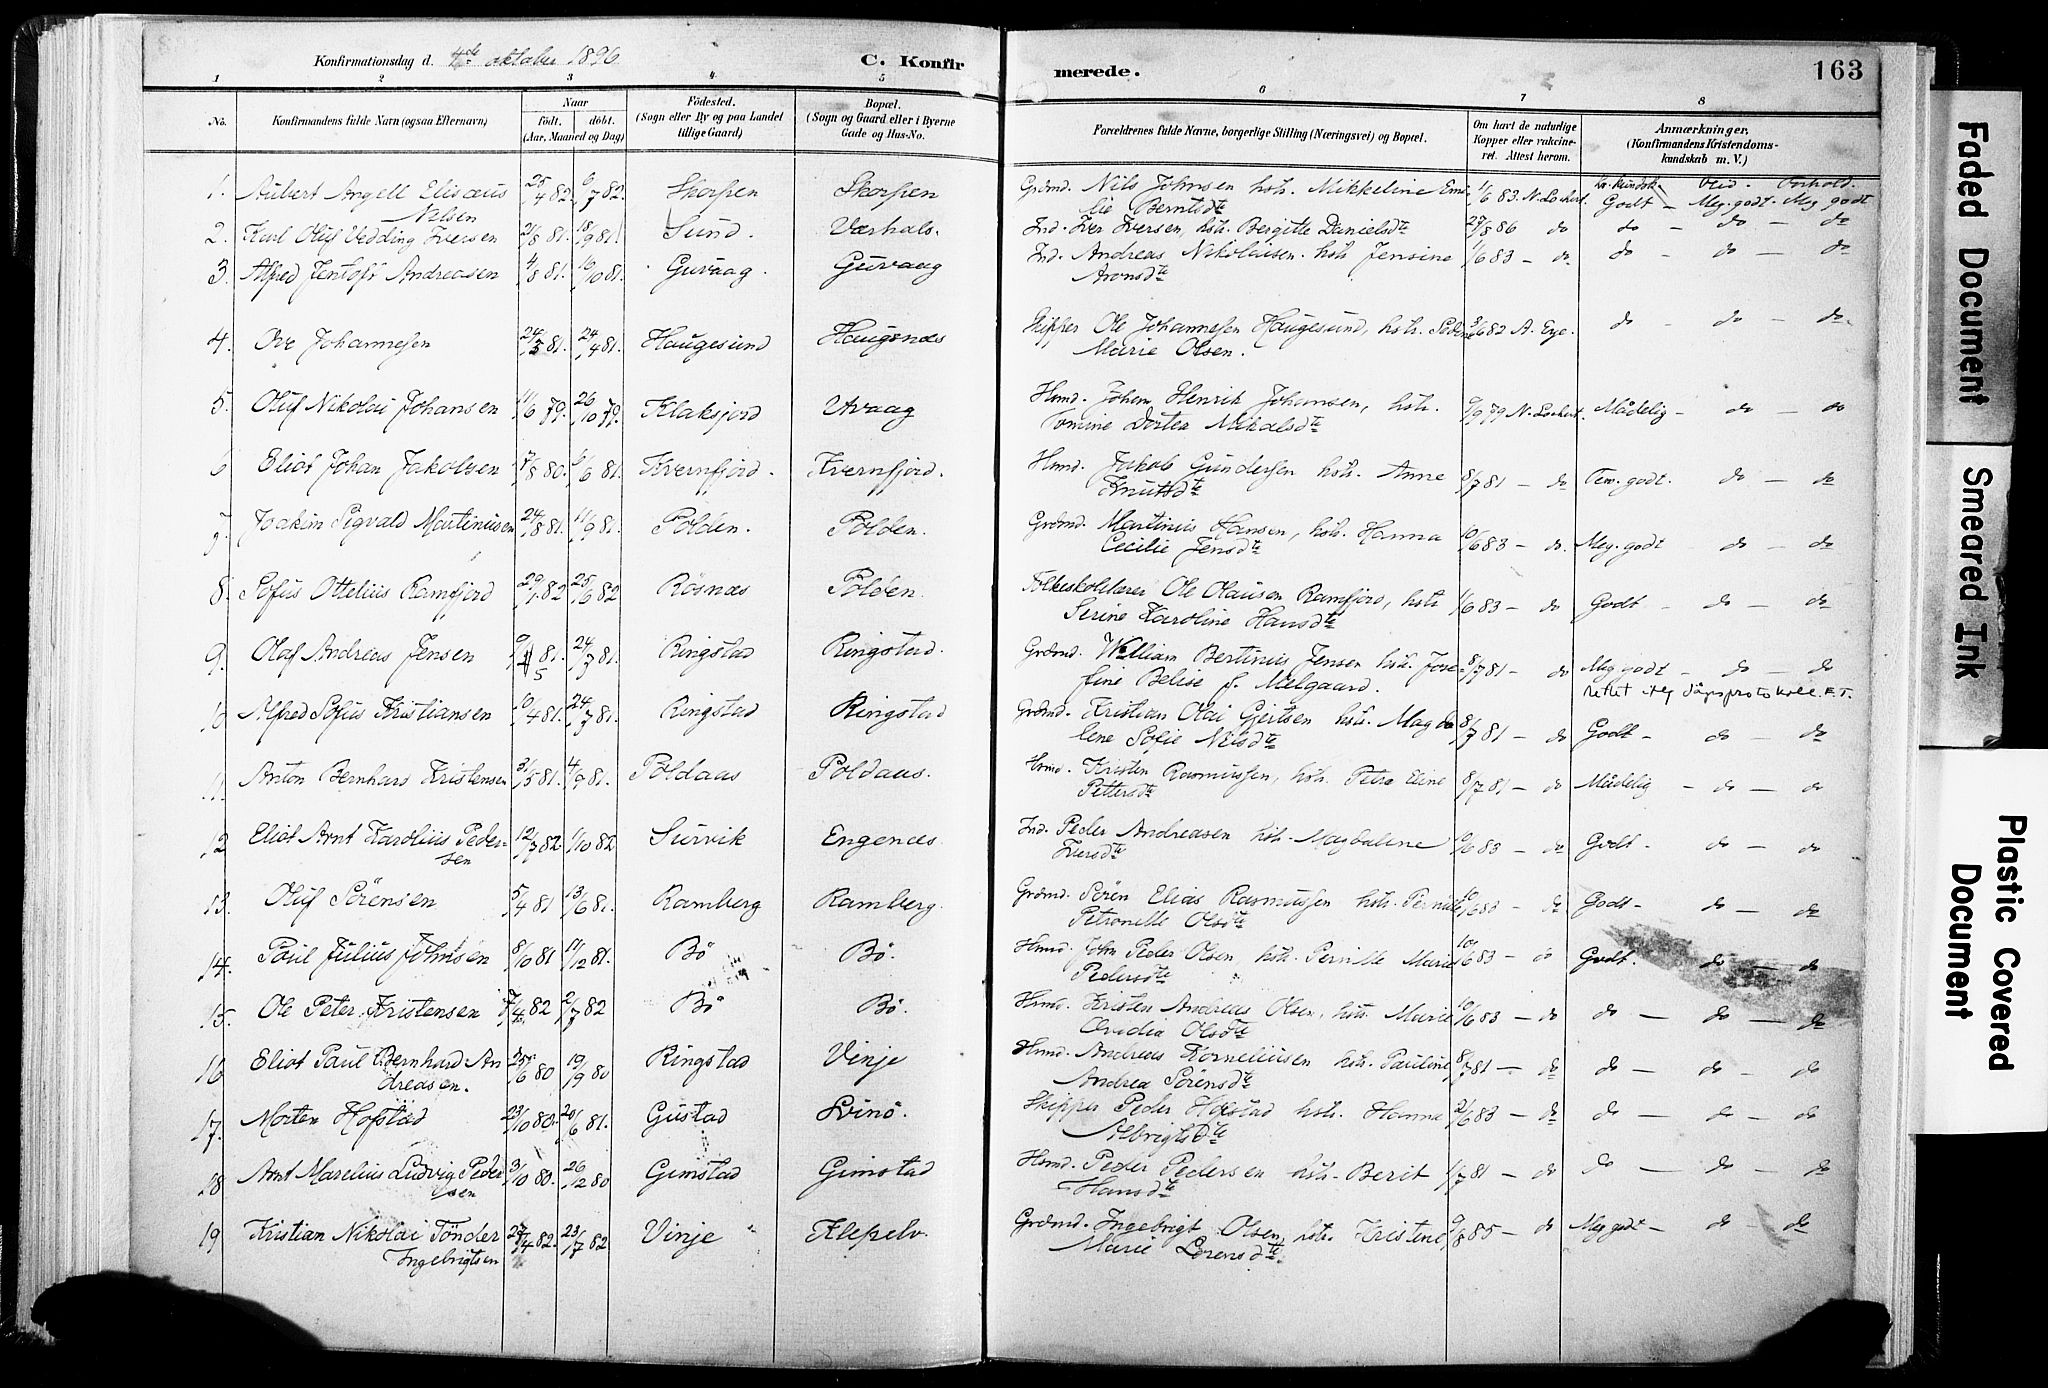 Konfirmationsdag d. 4de oktober 1896
C. Konfirmerede.
163
1 2 3 4 5 6 7 8
No. Konfirmandens fulde Navn (ogsaa Efternavn) Naar født. døbt. (Aar, Maaned og Dag) Fødested. (Sogn eller By og paa Landet tillige Gaard) Bopæl. (Sogn og Gaard eller i Byerne Gade og Hus-No. Forældrenes fulde Navne, borgerlige Stilling (Næringsvei) og Bopæl. Om havt de naturlige Kopper eller vakcineret. Attest herom. Anmærkninger, (Konfirmandens Kristendomskundskab m. V.)
1. Aubert Angell Elisæus Nilsen 25/4 82. 6/7 82. Skorpen Skorpen Grdmd. Nils Johnsen hstr. Mikkeline Emelie Berntsdtr 1/6 83. N. Lockert Kr. kundsk. Godt – Flid. Meg. godt. Forhold. Meg godt
2. Karl Oluf Vedding Iversen 21/8 81. 18/9 81. Sund. Værhals. Ind. Iver Iversen, hstr. Bergitte Danielsdtr 27/8 86 do do – do – do
3. Alfred Jentoft Andreasen 4/8 81. 16/10 81. Guvaag. Guvaag Ind. Andreas Nikolaisen hstr Jensine Aronsdtr 1/6 83 – do do – do – do
4. Ove Johannesen 24/3 81. 24/4 81. Haugesund Haugsnes Skipper Ole Johannesen Haugesund, hstr. Marie Olsen. 3/6 82 A. Eye. do – do – do
5. Oluf Nikolai Johansen 11/6 79. 26/10 79. Klaksjord Uvaag Hsmd. Johan Henrik Johansen, hstr. Tomine Dortea Mikalsdtr 9/9 79 N. Lockert. Mådelig – do – do
6 Eliot Johan Jakobsen 7/8 80. 6/6 81. Kvernfjord. Kvernfjord. Hsmd. Jakob Gundersen hstr. Anne Knutsdtr 8/7 81 – do Tem. godt. do – do
7. Joakim Sigvald Martinusen 24/8 81. 11/9 81. Polden. Polden. Grdmd. Martinus Hansen, hstr. Hanna Cecilie Jensdtr 10/6 83 – do. Meg. godt – do – do
8. Sofus Ottelius Ramfjord 29/1. 82 25/6 82 Røsnæs Polden. Folkeskolelærer Ole Olausen Ramfjord, hstr Serine Karoline Hansdtr 1/6 83 – do Godt – do – do
9. Olaf Andreas Jensen 9/5 81. 24/7 81. Ringstad Ringstad. Grdmd. William Bertinus Jensen hstr. Josefine Belise f. Melgaard. 8/7 81 – do Meg godt – do – do
rettet
10 Alfred Sofus Kristiansen 10/4 81. 24/7 81. Ringstad Ringstad Grdmd. Kristian Olai Gjertsen hstr. Magdalene Sofie Nilsdtr 8/7 81 – do Godt – do – do
11. Anton Bernhard Kristensen 31/5 81. 4/9 81. Poldaas Poldaas. Hsmd. Kristen Rasmussen, hstr. Petra Eline Pettersdtr 8/7 81 – do Mådelig – do – do
12 Eliot Arnt Karolius Pedersen 12/7 82. 1/10 82 Survik Engenæs Ind. Peder Andreasen hstr. Magdalene Iversdtr 10/6 83 – do Godt – do – do
13. Oluf Sørensen 5/4 81 13/6 81. Ramberg Ramberg. Grdmd. Søren Elias Rasmussen hstr. Pernille Petronelle Olsdtr 10/6 83 – do Godt – do – do
14. Paul Julius Johnsen 8/10 81 11/12 81. Bø Bø. Hsmd. John Peder Olsen hstr. Pernille Marie Pedersdtr 10/6 83 – do Godt. do – do
15. Ole Peter Kristensen 7/4 82 2/7 82 Bø Bø. Hsmd. Kristen Andreas Olsen, hstr. Marie Olsdtr 10/6 83 – do do – do – do
16 Eliot Paul Bernhard Andreasen. 25/6 80 19/9 80 Ringstad Vinje Hsmd. Andreas Korneliusen hstr. Pauline Andrea Sørensdtr 8/7 81 – do do – do – do
17. Morten Hofstad 23/10 80. 20/6 81. Gustad Svinø. Skipper Peder Hofstad hstr. Hanna Albrigtsdtr 2/6 83 – do do – do – do
18 Arnt Marelius Ludvig Pedersen 3/10 80. 26/12 80 Gimstad Gimstad Hsmd. Peder Pedersen hstr. Berit Hansdtr 1/7 81 – do do – do – do
19 Kristian Nikolai Tønder Ingebrigtsen 27/4 82. 23/7 82 Vinje Klepelv. Grdmd. Ingebrigt Olsen, hstr. Kristine Marie Lorensdtr. 9/8 85 – do Meg godt – do – do
Faded Document
Smeared Ink
Plastic Covered Document